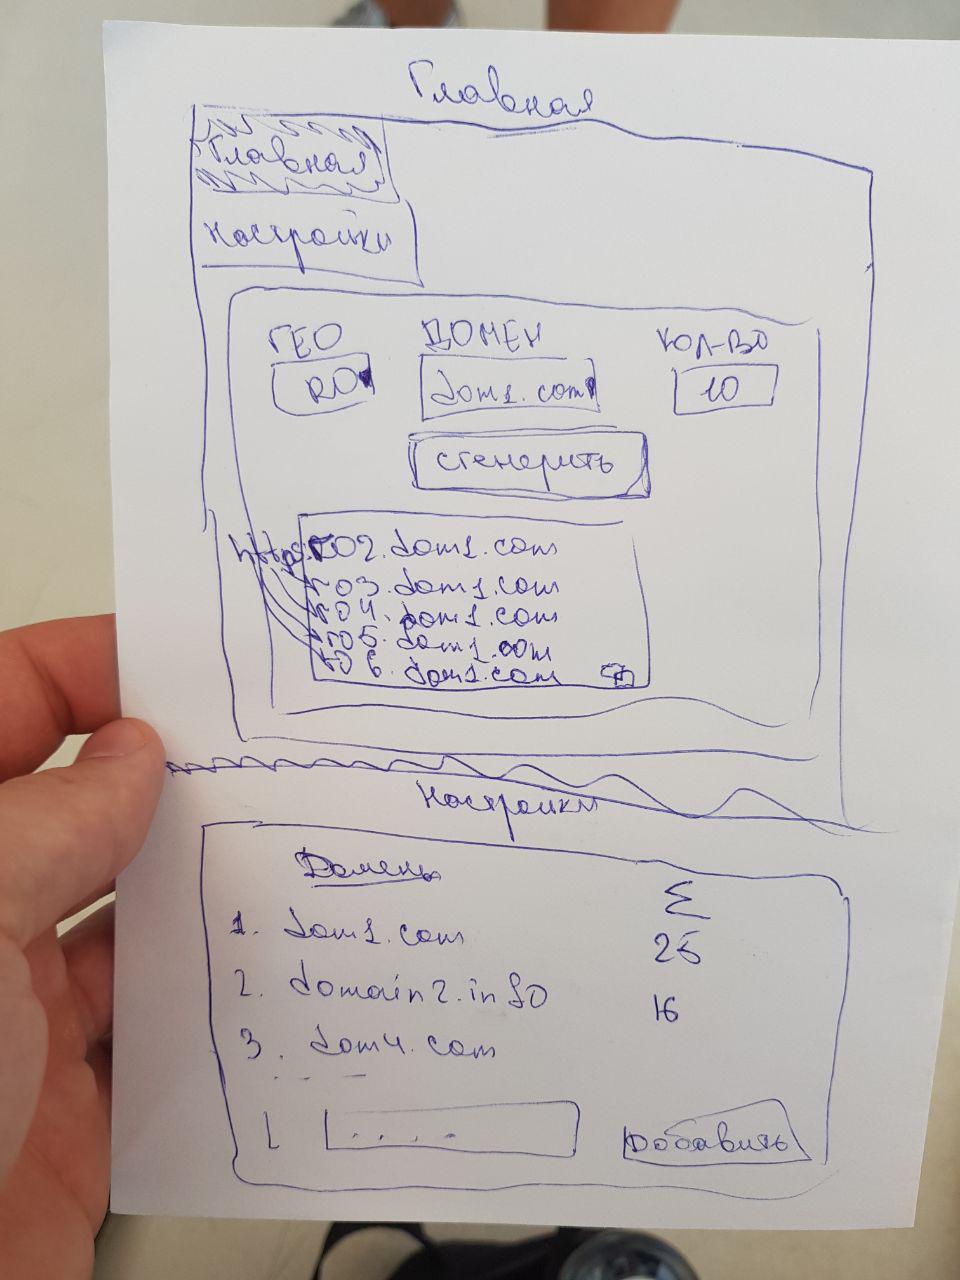 Главная
Главная
Настройки
ГЕО ДОМЕН КОЛ-ВО
RO dom1.com 10
сгенерить
https: ro2.dom1.com
ro3.dom1.com
ro4.dom1.com
ro5.dom1.com
ro6.dom1.com
Настройки
Домены Σ
1. dom1.com 25
2. domain2.info 16
3. dom4.com
Добавить